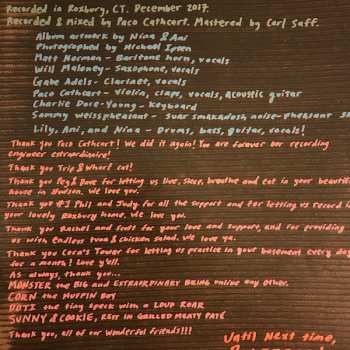 Recorded in Roxbury, CT. December 2017.
Recorded & mixed by Paco Cathcart. Mastered by Carl Saff.
Album artwork by Nina & Ani
Photographed by Michael Ipsen
Matt Norman - Baritone horn, vocals
Will Moloney - Saxophone, vocals
Gabe Adels - Clarinet, vocals
Paco Cathcart - Violin, claps, vocals, acoustic guitar
Charlie Dore-Young - Keyboard
Sammy weisspheasant - suar smakadosh noise-pheasant
Lily, Ani, and Nina - Drums, bass, guitar, vocals!
Thank you Paco Cathcart! We did it again! You are forever our recording
engineer extraordinaire!
Thank you Trip & Whart cat!
Thank you Peg & Dave for letting us live, sleep, breathe and eat in your beautiful
house in Hudson. We love you.
Thank you Phil and Judy for all the support and for letting us record in
your lovely Roxbury home. We love you.
Thank you Rachel and Scott for your love and support, and for providing
us with endless tuna & chicken salad. We love ya.
Thank you Cora's Tower for letting us practice in your basement every day
for a month! Love y'all.
As always, thank you...
MONSTER the BIG and EXTRAORDINARY BEING unlike any other.
CORN the MUFFIN BOY
DOTI the tiny speck with a LOUD ROAR
SUNNY & COOKIE, REST IN GRILLED MEATY PATÉ
Thank you, all of our wonderful friends!!!
Until Next time,